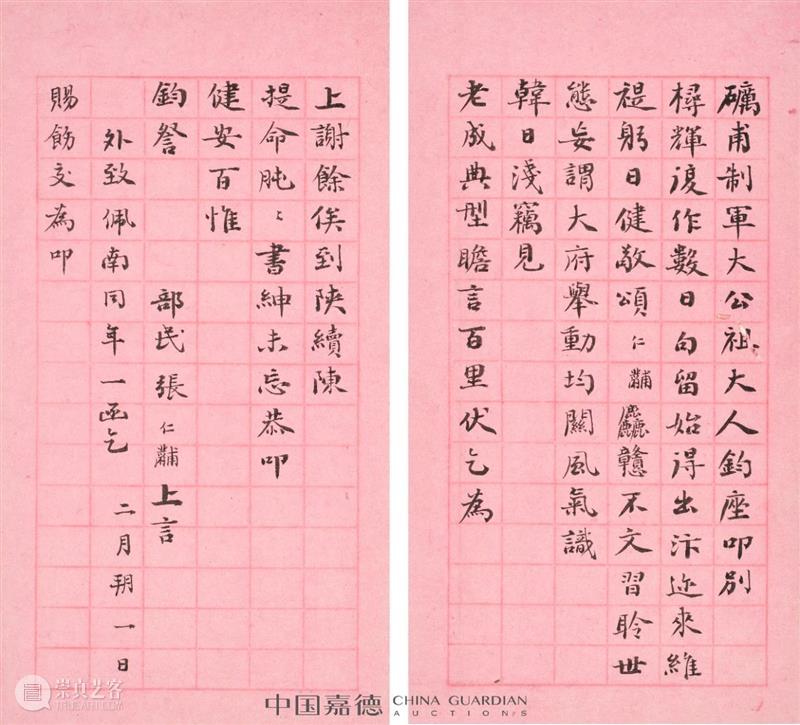 礪甫制軍大公祖大人鈞座叩別
樽輝復作數日句留始得出汴近來維
禔躬日健敬頌仁黼麤戇不文習聆世
態妄謂大府舉動均關風氣識
韓日淺竊見
老成典型瞻言百里伏乞為
上謝餘俟到陝續陳
提命肫〻書紳未忘恭叩
健安百惟
鈞詧 部民張仁黼上言
外致佩南同年一函乞 二月朔一日
賜飭交為叩
崇真艺客
中国嘉德 CHINA GUARDIAN
AUCTIONS